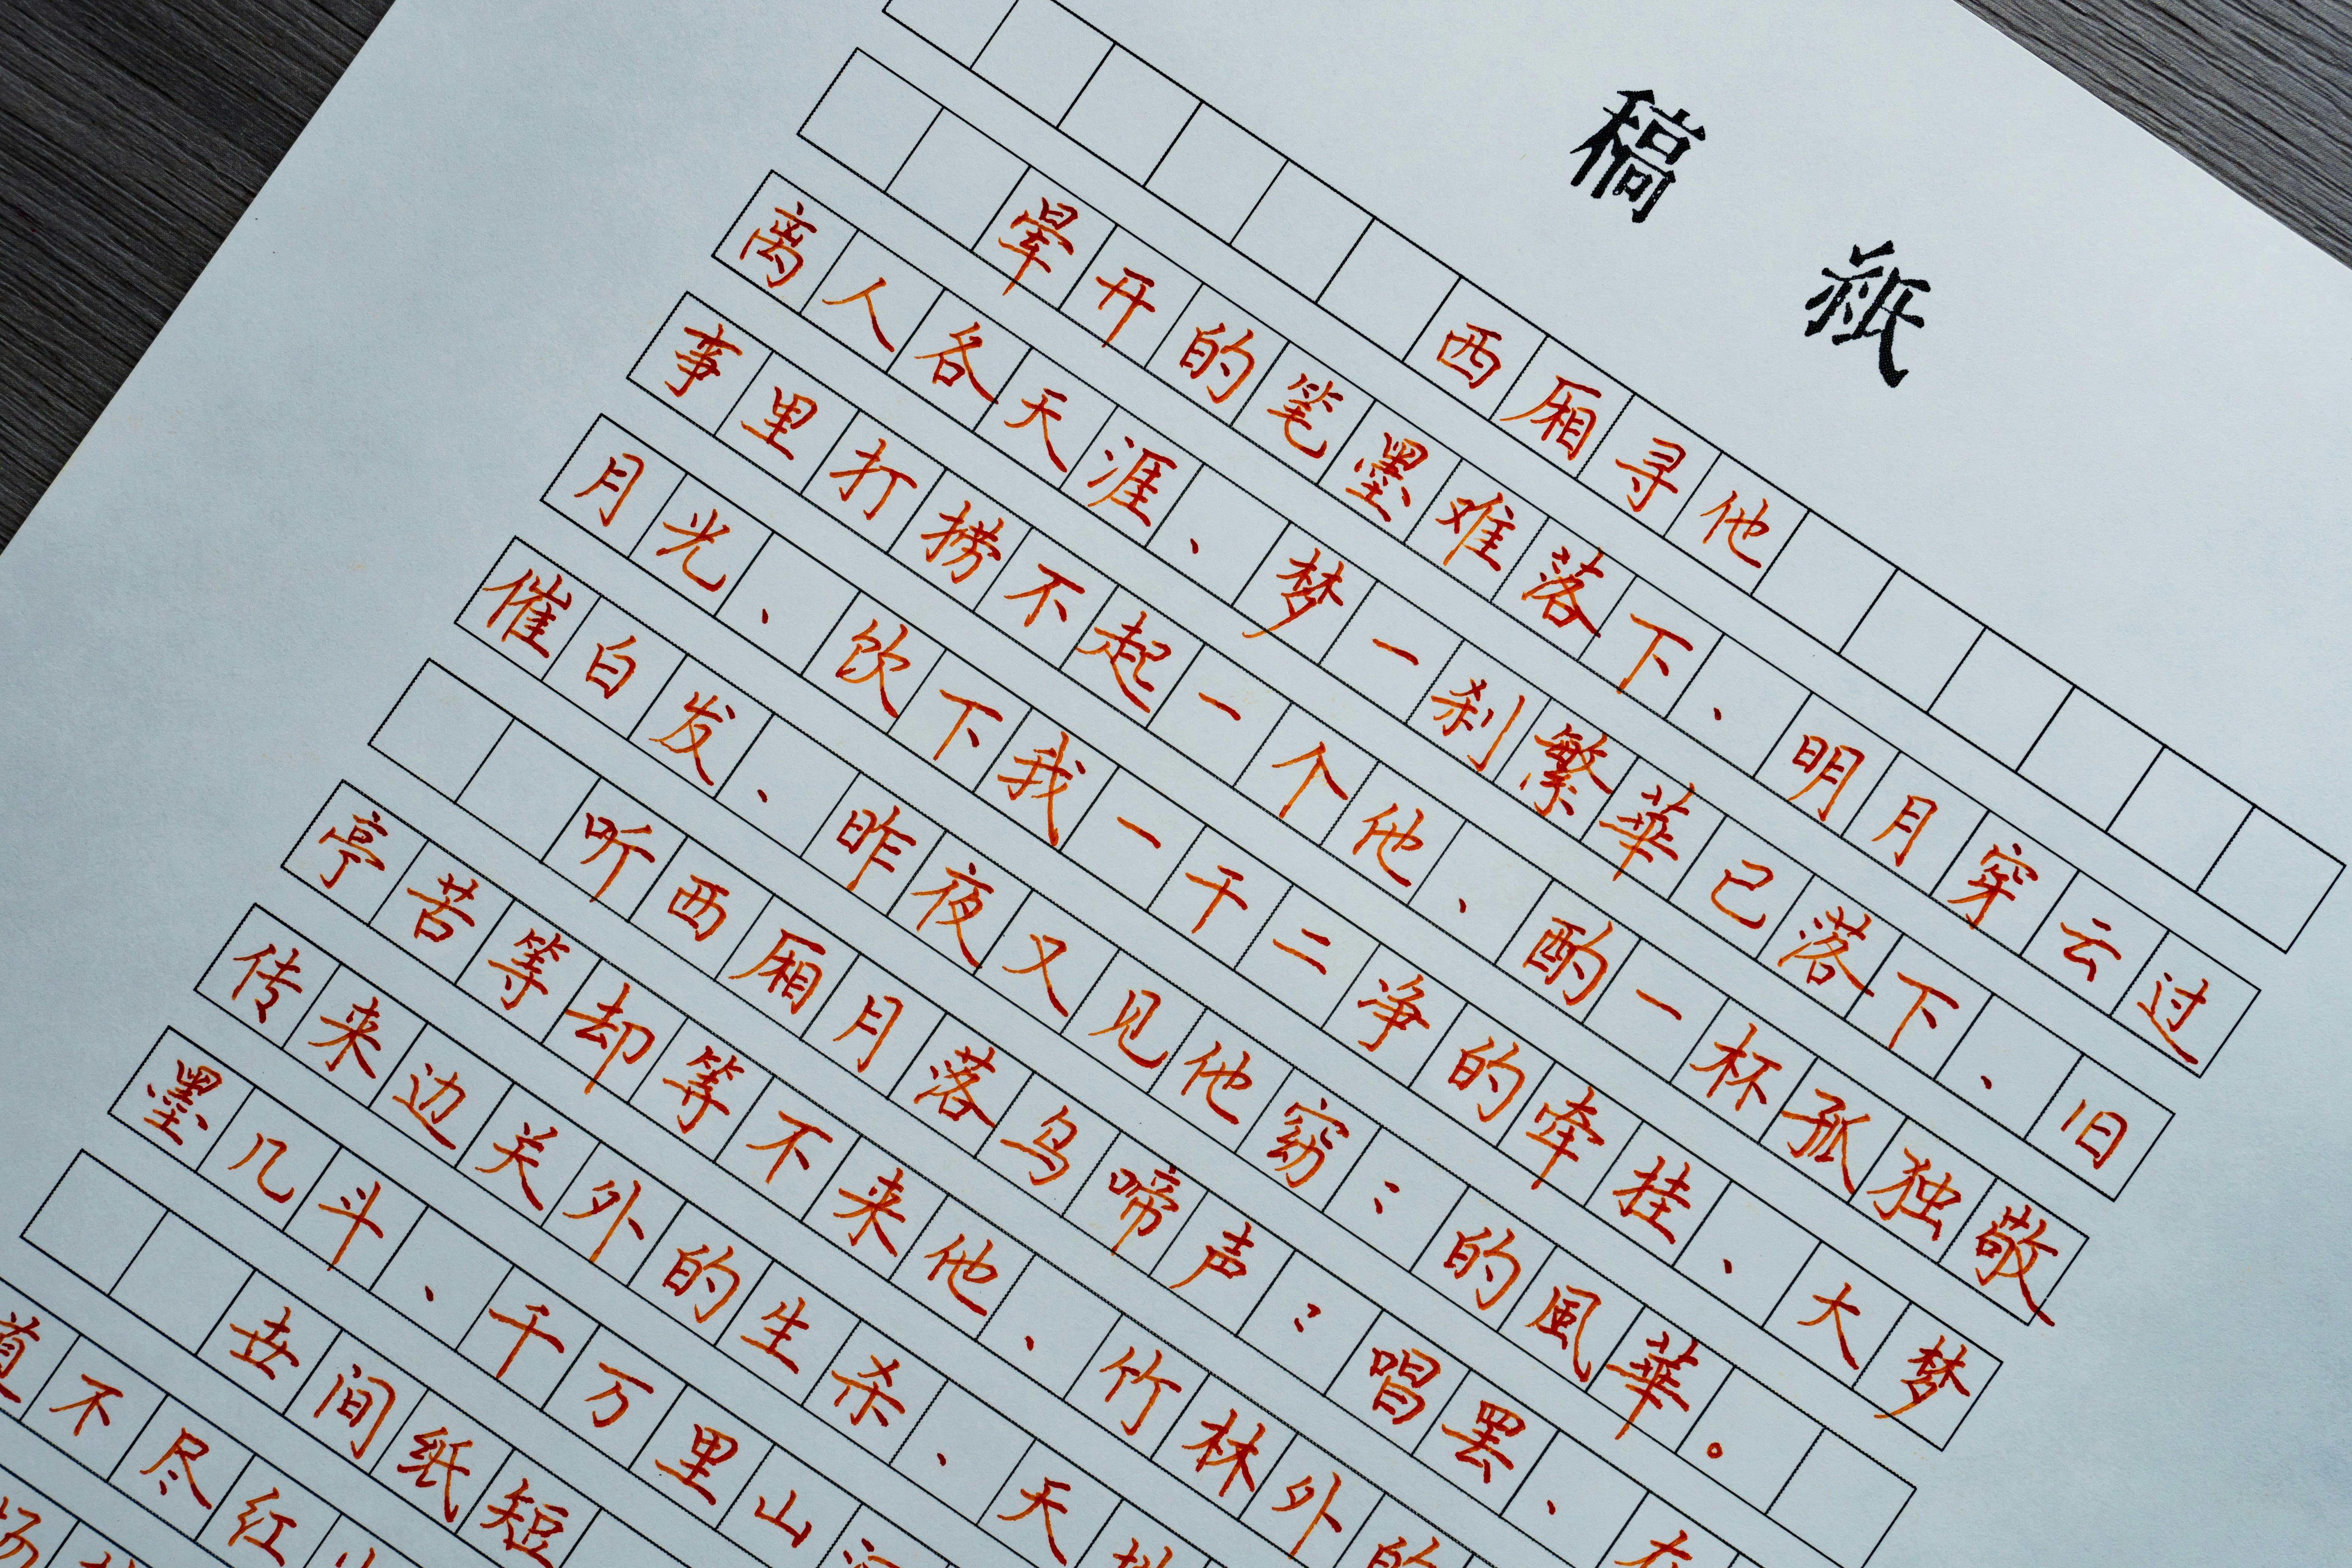 稿紙
西厢寻他
晕开的笔墨难落下、明月穿云过
离人各天涯、梦一刹繁華已落下、旧
事里打捞不起一个他、酌一杯孤独敬
月光、饮下我一干二净的牵挂、大梦
催白发、昨夜又见他窈：的風華。
听西厢月落乌啼声：唱罢、在
亭苦等却等不来他、竹林外的
传来边关外的生杀、天地
墨几斗、千万里山河
世间纸短
道不尽红